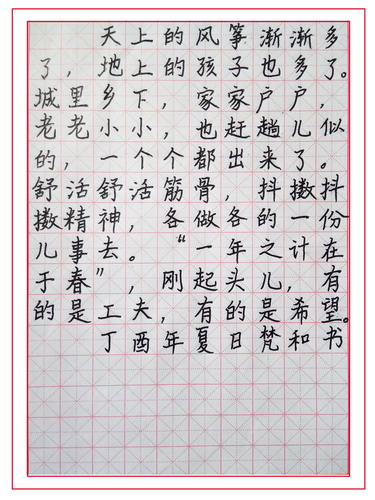 天上的风筝渐渐多
了，地上的孩子也多了。
城里乡下，家家户户，
老老小小，也赶趟儿似
的，一个个都出来了。
舒活舒活筋骨，抖擞抖
擞精神，各做各的一份
儿事去。“一年之计在
于春”，刚起头儿，有
的是工夫，有的是希望。
丁酉年夏日梵和书